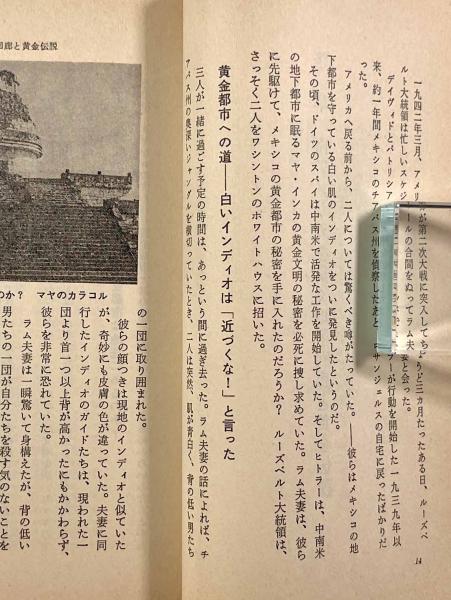 14
一九四二年三月、アメリカが第二次大戦に突入してちょうど三カ月たったある日、ルーズベ
ルト大統領は忙しいスケジュールの合間をぬってラム夫妻と会った。
デイヴィドとパトリシア
ーが行動を開始した一九三九年以
来、約一年間メキシコのチアパス州を偵察したあと
サンジェルスの自宅に戻ったばかりだ
った。
アメリカへ戻る前から、二人については驚くべき噂がたっていた。――彼らはメキシコの地
下都市を守っている白い肌のインディオをついに発見したというのだ。
その頃、ドイツのスパイは中南米で活発な工作を開始していた。そしてヒトラーは、中南米
の地下都市に眠るマヤ・インカの黄金文明の秘密を必死に捜し求めていた。ラム夫妻は、彼ら
に先駆けて、メキシコの黄金都市の秘密を手に入れたのだろうか？　ルーズベルト大統領は、
さっそく二人をワシントンのホワイトハウスに招いた。
黄金都市への道――白いインディオは「近づくな！」と言った
三人が一緒に過ごす予定の時間は、あっという間に過ぎ去った。ラム夫妻の話によれば、チ
アパス州の奥深いジャングルを横切っていたとき、二人は突然、肌が青白く、背の低い男たち
回廊と黄金伝説
のか？　マヤのカラコル
の一団に取り囲まれた。
彼らの顔つきは現地のインディオと似ていた
が、奇妙にも皮膚の色が違っていた。夫妻に同
行したインディオのガイドたちは、現われた一
団より首一つ以上背が高かったにもかかわらず、
彼らを非常に恐れていた。
ラム夫妻は一瞬驚いて身構えたが、背の低い
男たちの一団が自分たちを殺す気のないことを